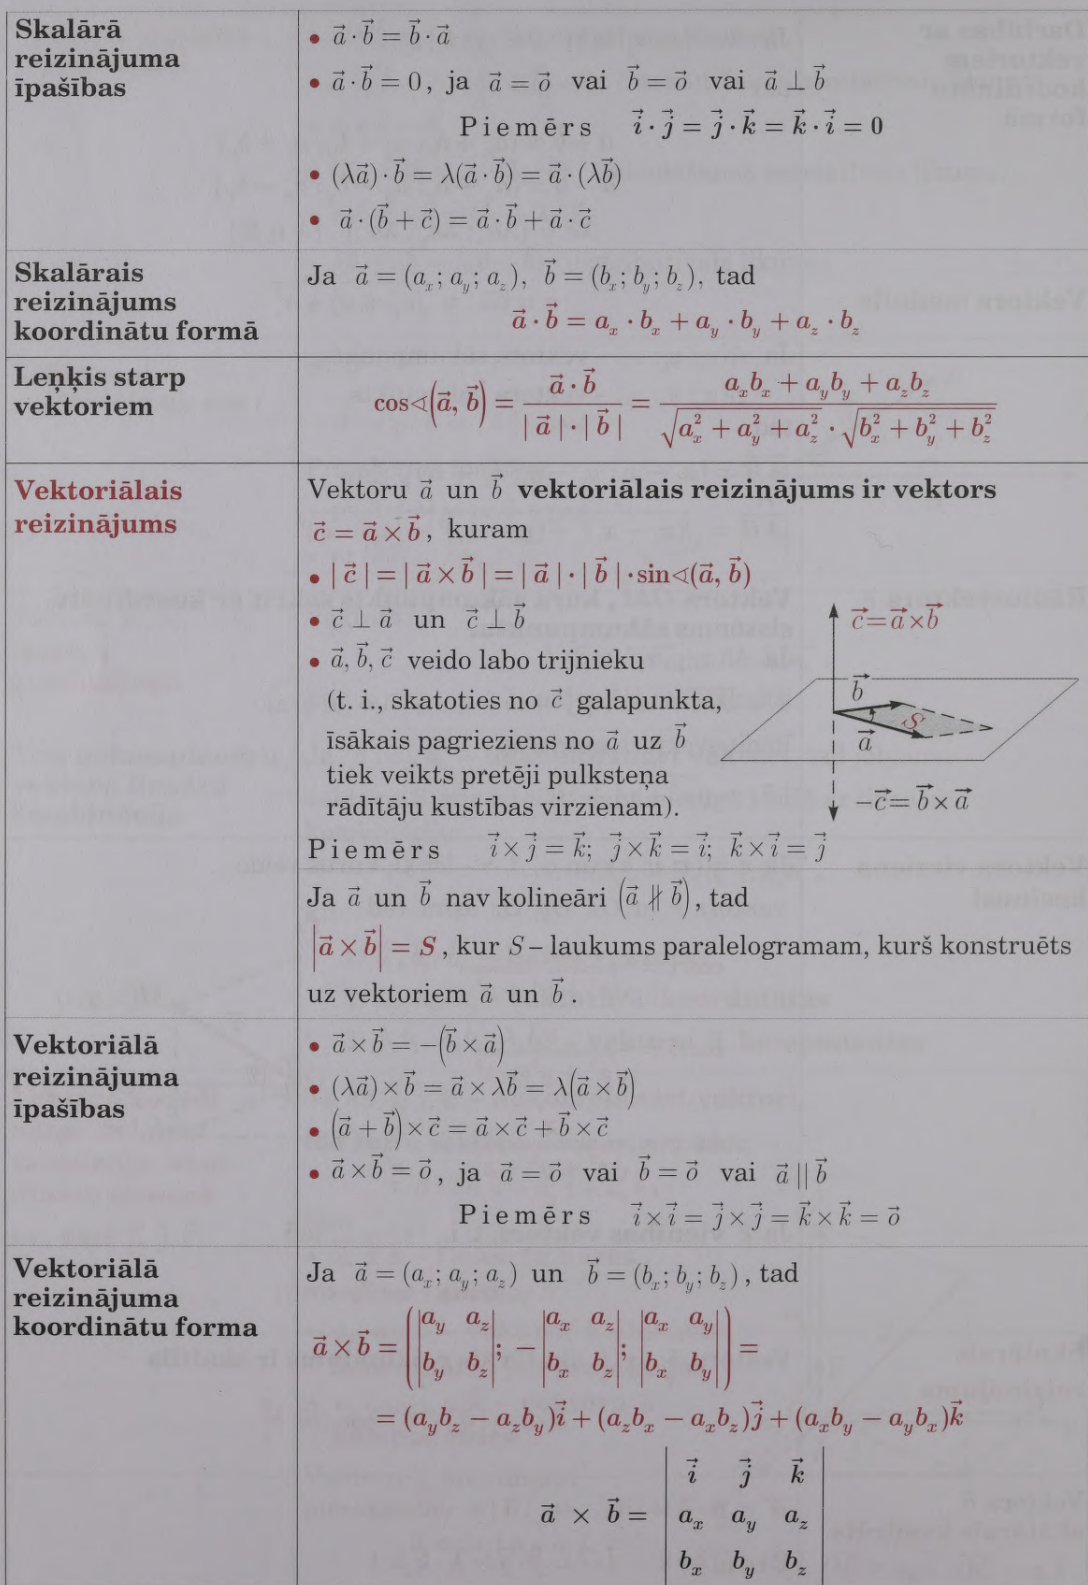 Skalārā
reizinājuma
īpašības
• a⃗ · b⃗ = b⃗ · a⃗
• a⃗ · b⃗ = 0, ja a⃗ = o⃗ vai b⃗ = o⃗ vai a⃗ ⊥ b⃗
Piemērs i⃗ · j⃗ = j⃗ · k⃗ = k⃗ · i⃗ = 0
• (λa⃗) · b⃗ = λ(a⃗ · b⃗) = a⃗ · (λb⃗)
• a⃗ · (b⃗ + c⃗) = a⃗ · b⃗ + a⃗ · c⃗
Skalārais
reizinājums
koordinātu formā
Ja a⃗ = (a_x; a_y; a_z), b⃗ = (b_x; b_y; b_z), tad
a⃗ · b⃗ = a_x · b_x + a_y · b_y + a_z · b_z
Leņķis starp
vektoriem
cos∢(a⃗, b⃗) = (a⃗ · b⃗) / (|a⃗| · |b⃗|) = (a_x b_x + a_y b_y + a_z b_z) / (√(a_x² + a_y² + a_z²) · √(b_x² + b_y² + b_z²))
Vektoriālais
reizinājums
Vektoru a⃗ un b⃗ vektoriālais reizinājums ir vektors
c⃗ = a⃗ × b⃗, kuram
• |c⃗| = |a⃗ × b⃗| = |a⃗| · |b⃗| · sin∢(a⃗, b⃗)
• c⃗ ⊥ a⃗ un c⃗ ⊥ b⃗
• a⃗, b⃗, c⃗ veido labo trijnieku
(t. i., skatoties no c⃗ galapunkta,
īsākais pagrieziens no a⃗ uz b⃗
tiek veikts pretēji pulksteņa
rādītāju kustības virzienam).
c⃗ = a⃗ × b⃗
b⃗
S
a⃗
−c⃗ = b⃗ × a⃗
Piemērs i⃗ × j⃗ = k⃗; j⃗ × k⃗ = i⃗; k⃗ × i⃗ = j⃗
Ja a⃗ un b⃗ nav kolineāri (a⃗ ∦ b⃗), tad
|a⃗ × b⃗| = S, kur S – laukums paralelogramam, kurš konstruēts
uz vektoriem a⃗ un b⃗.
Vektoriālā
reizinājuma
īpašības
• a⃗ × b⃗ = −(b⃗ × a⃗)
• (λa⃗) × b⃗ = a⃗ × λb⃗ = λ(a⃗ × b⃗)
• (a⃗ + b⃗) × c⃗ = a⃗ × c⃗ + b⃗ × c⃗
• a⃗ × b⃗ = o⃗, ja a⃗ = o⃗ vai b⃗ = o⃗ vai a⃗ || b⃗
Piemērs i⃗ × i⃗ = j⃗ × j⃗ = k⃗ × k⃗ = o⃗
Vektoriālā
reizinājuma
koordinātu forma
Ja a⃗ = (a_x; a_y; a_z) un b⃗ = (b_x; b_y; b_z), tad
a⃗ × b⃗ = (|a_y a_z|; −|a_x a_z|; |a_x a_y|) =
|b_y b_z| |b_x b_z| |b_x b_y|
= (a_y b_z − a_z b_y)i⃗ + (a_z b_x − a_x b_z)j⃗ + (a_x b_y − a_y b_x)k⃗
| i⃗ j⃗ k⃗ |
a⃗ × b⃗ = | a_x a_y a_z |
| b_x b_y b_z |